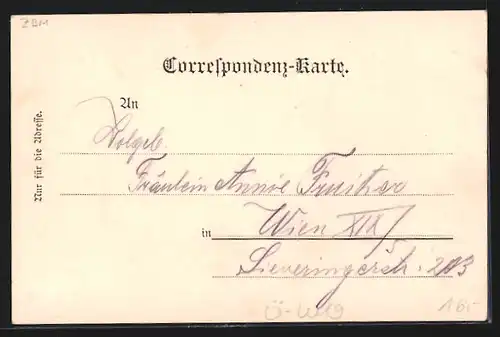 ZBM
Correspondenz-Karte.
An
Nur für die Adresse.
Fräulein Annie
in Wien XIX/5
Sieveringerstr. 203
Ü-WO
16,-